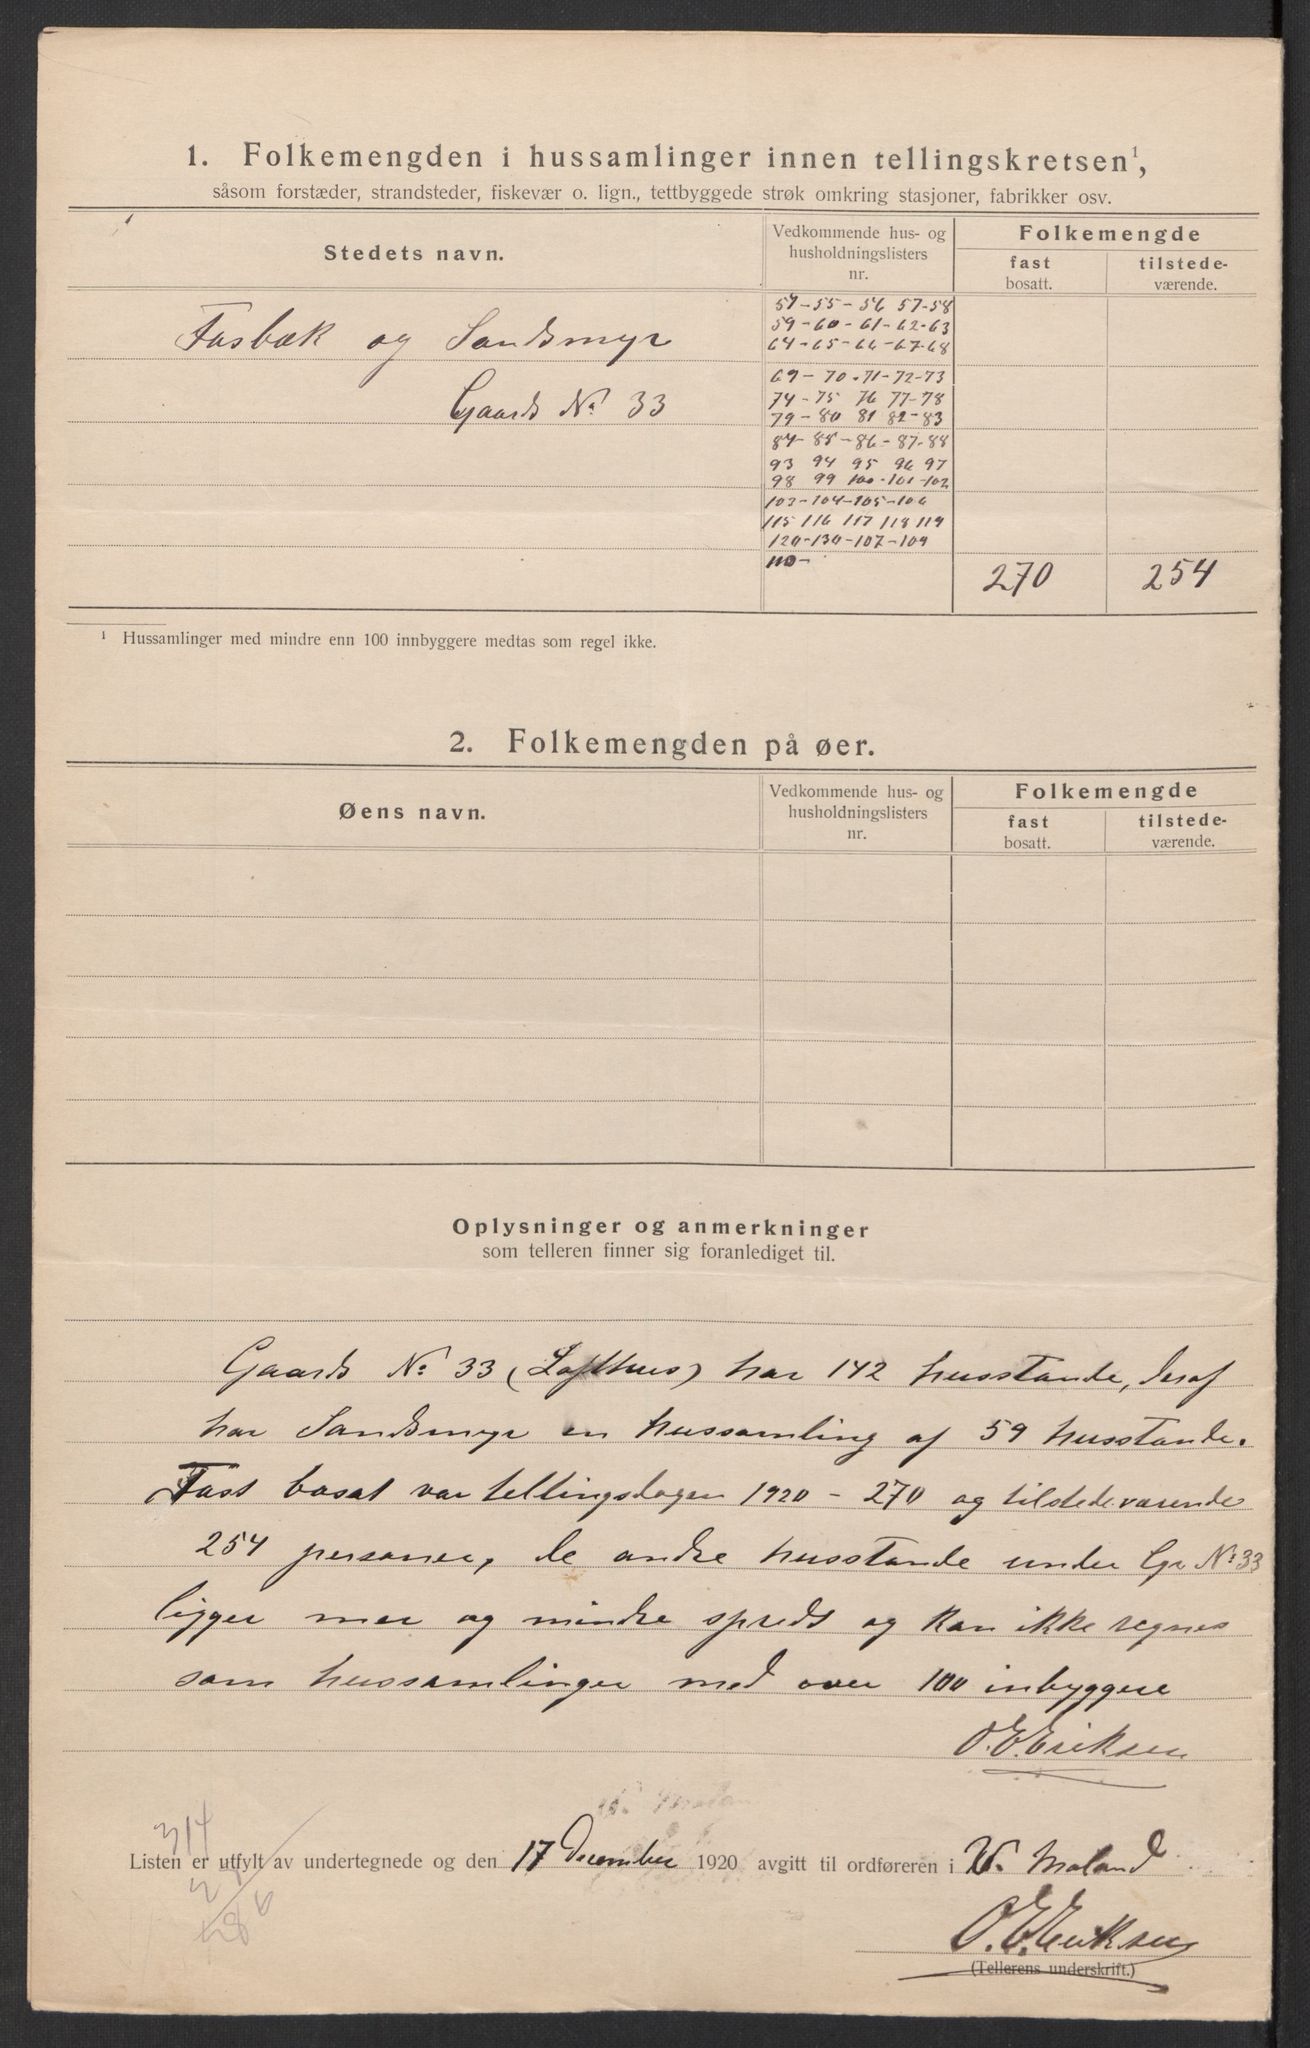 1. Folkemengden i hussamlinger innen tellingskretsen¹,
såsom forstæder, strandsteder, fiskevær o. lign., tettbyggede strøk omkring stasjoner, fabrikker osv.
Stedets navn.
Vedkommende hus- og
husholdningslisters
nr.
Folkemengde
fast
bosatt.
tilstede-
værende.
Fasbæk og Sandsmyr
Gaards No 33
54-55-56 57-58
59-60-61-62-63
64-65-66-67-68
69-70-71-72-73
74-75 76 77-78
79-80 81 82-83
84-85-86-87-88
93 94 95 96 97
98 99 100-101-102
103-104-105-106
115 116 117 118 119
120-130-107-109
110-
270 254
¹ Hussamlinger med mindre enn 100 innbyggere medtas som regel ikke.
2. Folkemengden på øer.
Øens navn.
Vedkommende hus- og
husholdningslisters
nr.
Folkemengde
fast
bosatt.
tilstede-
værende.
Oplysninger og anmerkninger
som telleren finner sig foranlediget til.
Gaards No 33 (Lofthus) har 142 husstande, deraf
har Sandsmyr en hussamling af 59 husstande.
Fast bosat var tellingsdagen 1920 - 270 og tilstedeværende
254 personer, de andre husstande under Gr No 33
ligger mer og mindre spredt og kan ikke regnes
som hussamlinger med over 100 inbyggere
O.E. Eriksen
314
Listen er utfylt av undertegnede og den 17 December 1920 avgitt til ordføreren i V. Moland
O.E. Eriksen
(Tellerens underskrift.)